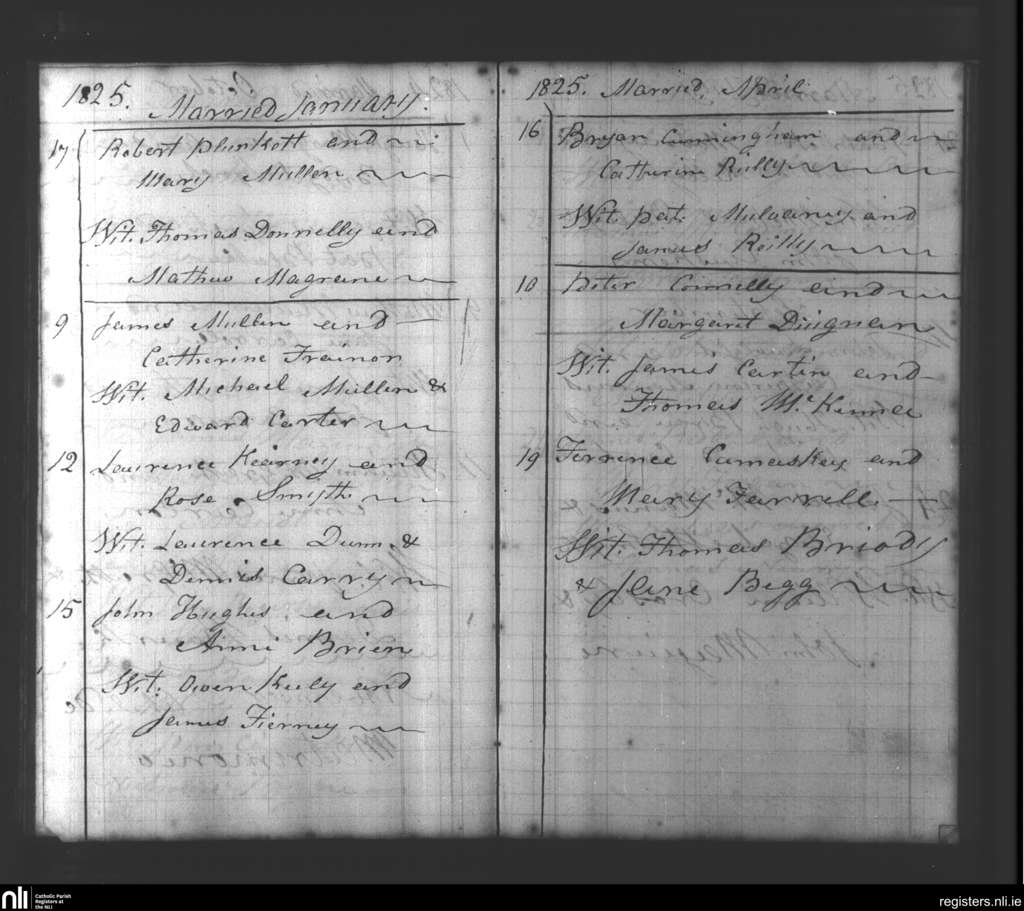 1825. Married January.
17 Robert Plunkett and
Mary Mullen
Wit. Thomas Donnelly and
Mathew Magrane
9 James Mullen and
Catherine Trainor
Wit. Michael Mullen &
Edward Carter
12 Laurence Kearney and
Rose Smyth
Wit. Laurence Dunn &
Dennis Carry
15 John Hughs and
Anne Brien
Wit. Owen Kuly and
James Tierney
1825. Married April
16 Bryan Cunningham and
Catherine Rielly
Wit. Pat. Mulvaney and
James Reilly
10 Peter Connelly and
Margaret Duignan
Wit. James Cartin and
Thomas McKenna
19 Terrence Cumaskey and
Mary Farrell
Wit. Thomas Briody
& Jane Begg
nli Catholic Parish
Registers at
the NLI
registers.nli.ie